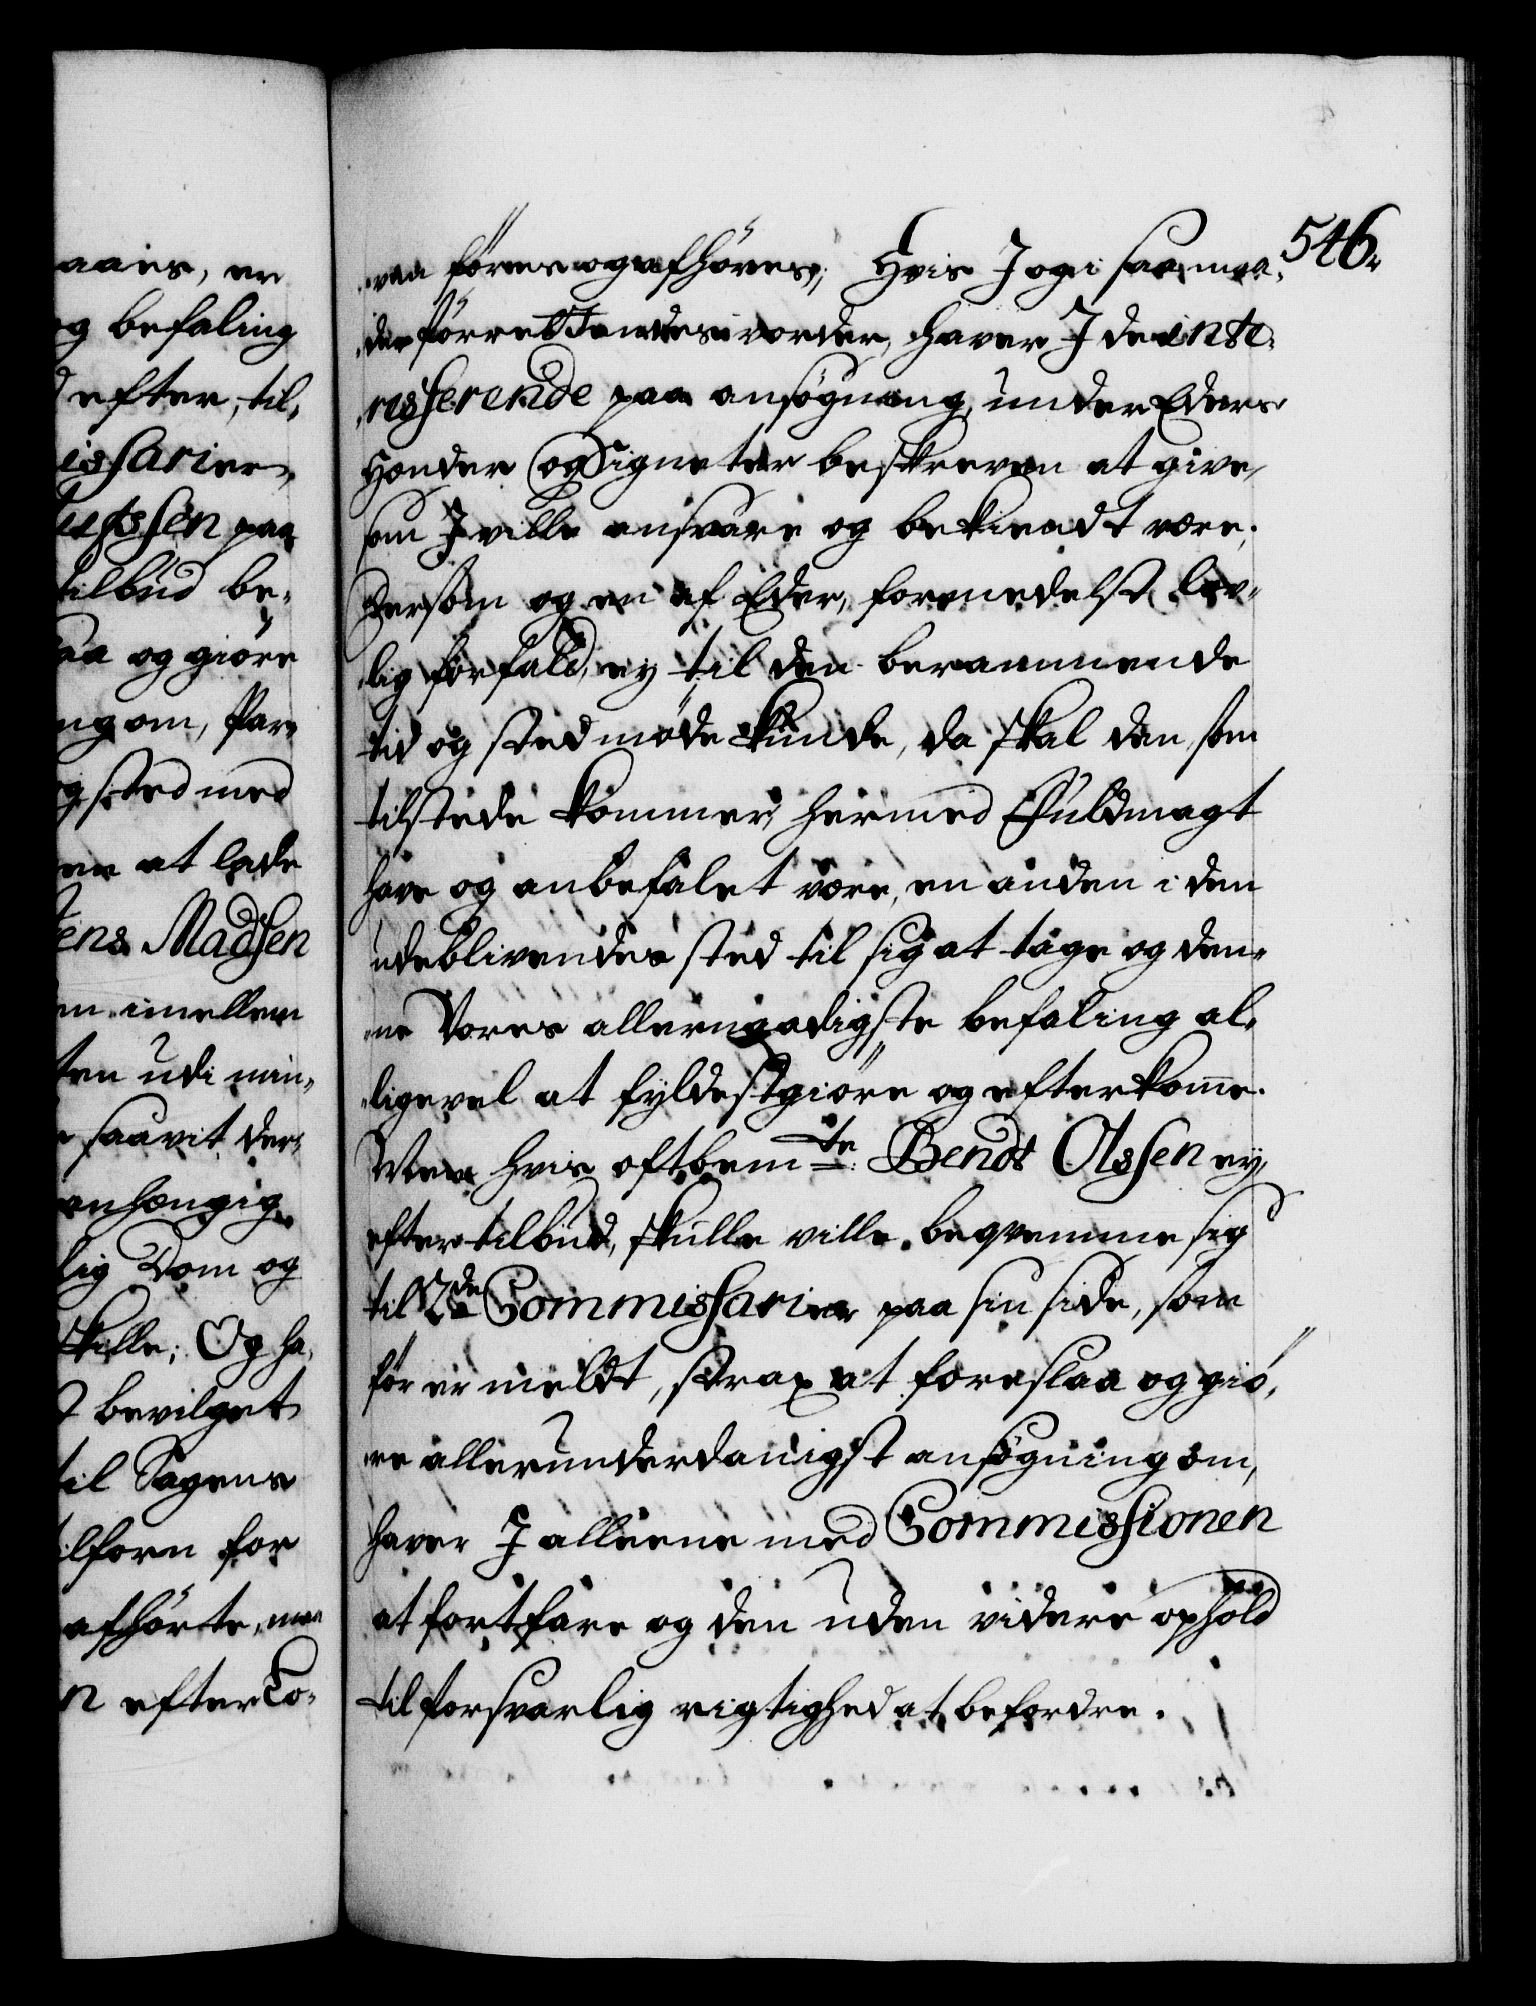 aaies, er
og befaling
efter, til-
issarier,
ustsen paa
tilbud be-
saa og giöre
ng om, Par-
og sted med
en at lade
Jens Madsen
en imellem
ten udi min-
saavit der-
anhængig
lig Dom og
skille; Og ha-
bevilget
til Sagens
ilforn for
afhörte, maa
n efter Lo-
546.
vaa föres og afhöres; Hvis J ogsaa saa maa-
der forrettendes vorder, haver J de inte-
resserende paa ansögning, under Eders
Hender og Signeter beskreven at give,
som J ville ansvare og bekiendt være.
Dersom og en af Eder, formedelst lov-
lig forfald, ey til den berammende
tid og sted möde kunde, da skal den som
tilstede kommer, hermed Fuldmagt
have og anbefalet være, en anden i den
udeblivendes sted til sig at tage og den-
ne Vores allernaadigste befaling al-
ligevel at fyldestgiöre og efterkom̄e.
Men hvis oftbemte Bendt Olssen ey,
efter tilbud, skulle ville beqvemme sig
til 2de Commissarier paa sin side, som
för er meldt, strax at foreslaa og giö-
re allerunderdanigst ansögning om,
haver J alleene med Commissionen
at fortfare og den uden videre ophold
til forsvarlig rigtighed at befordre.